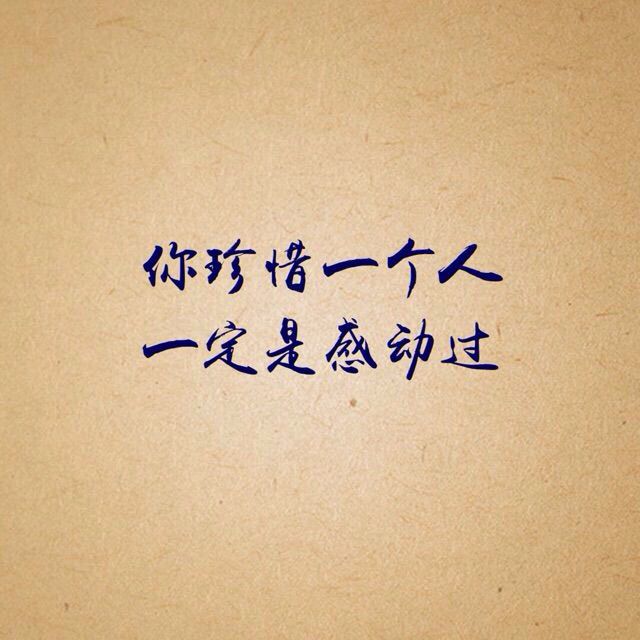 你珍惜一个人
一定是感动过